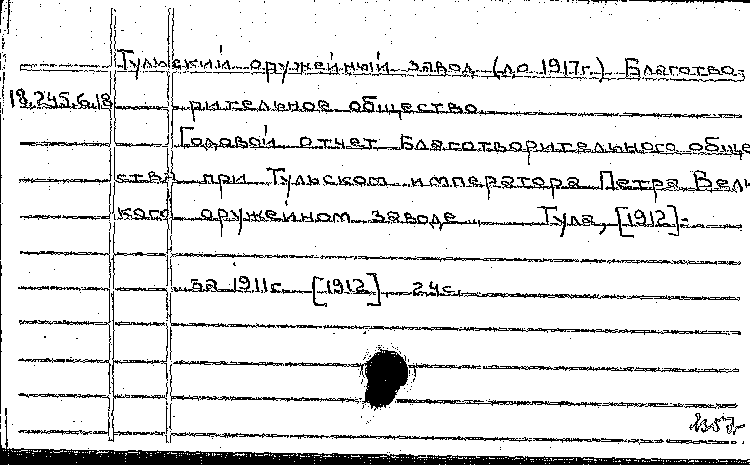 Тульский оружейный завод (до 1917г.) Благотво-
18.245.6.18 рительное общество.
Годовой отчет Благотворительного обще
ства при Тульском императора Петра Вели
кого оружейном заводе... Тула, [1912]-
за 1911г. [1912]. 24с.